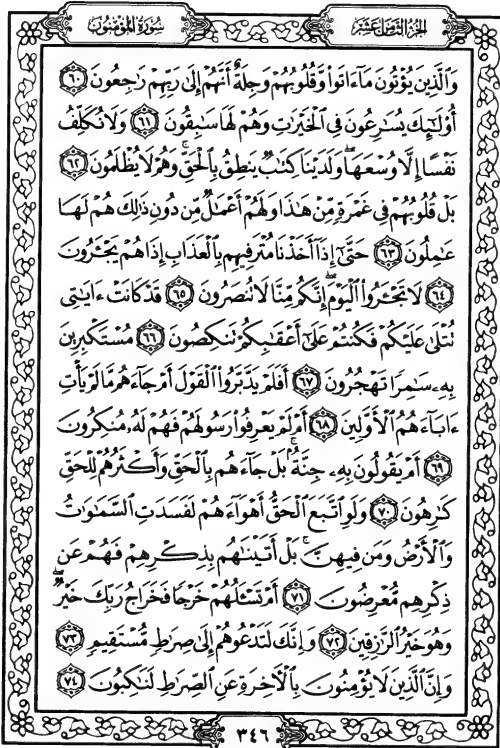 سُورَةُ المُؤْمِنُون
الجُزْءُ الثَّامِنَ عَشَر
وَٱلَّذِينَ يُؤْتُونَ مَآءَاتَوا۟ وَّقُلُوبُهُمْ وَجِلَةٌ أَنَّهُمْ إِلَىٰ رَبِّهِمْ رَٰجِعُونَ ٦٠
أُو۟لَٰٓئِكَ يُسَٰرِعُونَ فِى ٱلْخَيْرَٰتِ وَهُمْ لَهَا سَٰبِقُونَ ٦١ وَلَا نُكَلِّفُ
نَفْسًا إِلَّا وُسْعَهَا ۖ وَلَدَيْنَا كِتَٰبٌ يَنطِقُ بِٱلْحَقِّ ۚ وَهُمْ لَا يُظْلَمُونَ ٦٢
بَلْ قُلُوبُهُمْ فِى غَمْرَةٍ مِّنْ هَٰذَا وَلَهُمْ أَعْمَٰلٌ مِّن دُونِ ذَٰلِكَ هُمْ لَهَا
عَٰمِلُونَ ٦٣ حَتَّىٰٓ إِذَآ أَخَذْنَا مُتْرَفِيهِم بِٱلْعَذَابِ إِذَا هُمْ يَجْـَٔرُونَ
٦٤ لَا تَجْـَٔرُوا۟ ٱلْيَوْمَ ۖ إِنَّكُم مِّنَّا لَا تُنصَرُونَ ٦٥ قَدْ كَانَتْ ءَايَٰتِى
تُتْلَىٰ عَلَيْكُمْ فَكُنتُمْ عَلَىٰٓ أَعْقَٰبِكُمْ تَنكِصُونَ ٦٦ مُسْتَكْبِرِينَ
بِهِۦ سَٰمِرًا تَهْجُرُونَ ٦٧ أَفَلَمْ يَدَّبَّرُوا۟ ٱلْقَوْلَ أَمْ جَآءَهُم مَّا لَمْ يَأْتِ
ءَابَآءَهُمُ ٱلْأَوَّلِينَ ٦٨ أَمْ لَمْ يَعْرِفُوا۟ رَسُولَهُمْ فَهُمْ لَهُۥ مُنكِرُونَ
٦٩ أَمْ يَقُولُونَ بِهِۦ جِنَّةٌۢ ۚ بَلْ جَآءَهُم بِٱلْحَقِّ وَأَكْثَرُهُمْ لِلْحَقِّ
كَٰرِهُونَ ٧٠ وَلَوِ ٱتَّبَعَ ٱلْحَقُّ أَهْوَآءَهُمْ لَفَسَدَتِ ٱلسَّمَٰوَٰتُ
وَٱلْأَرْضُ وَمَن فِيهِنَّ ۚ بَلْ أَتَيْنَٰهُم بِذِكْرِهِمْ فَهُمْ عَن
ذِكْرِهِم مُّعْرِضُونَ ٧١ أَمْ تَسْـَٔلُهُمْ خَرْجًا فَخَرَاجُ رَبِّكَ خَيْرٌ ۖ
وَهُوَ خَيْرُ ٱلرَّٰزِقِينَ ٧٢ وَإِنَّكَ لَتَدْعُوهُمْ إِلَىٰ صِرَٰطٍ مُّسْتَقِيمٍ ٧٣
وَإِنَّ ٱلَّذِينَ لَا يُؤْمِنُونَ بِٱلْءَاخِرَةِ عَنِ ٱلصِّرَٰطِ لَنَٰكِبُونَ ٧٤
٣٤٦